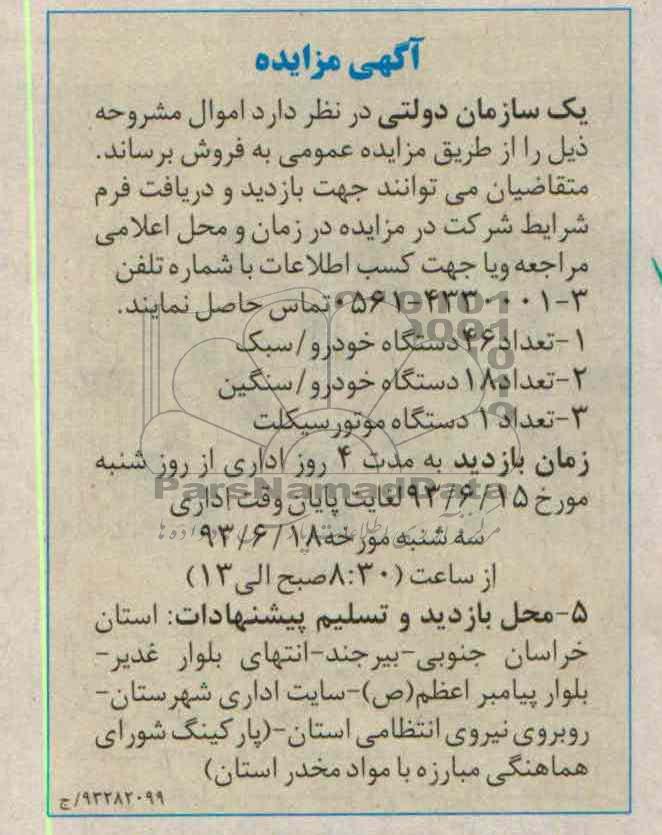 آگهی مزایده
یک سازمان دولتی در نظر دارد اموال مشروحه
ذیل را از طریق مزایده عمومی به فروش برساند.
متقاضیان می توانند جهت بازدید و دریافت فرم
شرایط شرکت در مزایده در زمان و محل اعلامی
مراجعه ویا جهت کسب اطلاعات با شماره تلفن
۳-۴۳۳۰۰۰۱-۰۵۶۱ تماس حاصل نمایند.
۱-تعداد۴۶دستگاه خودرو/سبک
۲-تعداد۱۸دستگاه خودرو/سنگین
۳-تعداد۱ دستگاه موتورسیکلت
زمان بازدید به مدت ۴ روز اداری از روز شنبه
مورخ ۹۳/۶/۱۵ لغایت پایان وقت اداری
ParsNamadData
سه شنبه مورخه۹۳/۶/۱۸
از ساعت (۸:۳۰صبح الی۱۳)
۵-محل بازدید و تسلیم پیشنهادات: استان
خراسان جنوبی-بیرجند-انتهای بلوار غدیر-
بلوار پیامبر اعظم(ص)-سایت اداری شهرستان-
روبروی نیروی انتظامی استان-(پارکینگ شورای
هماهنگی مبارزه با مواد مخدر استان)
۹۳۲۸۲۰۹۹/ج